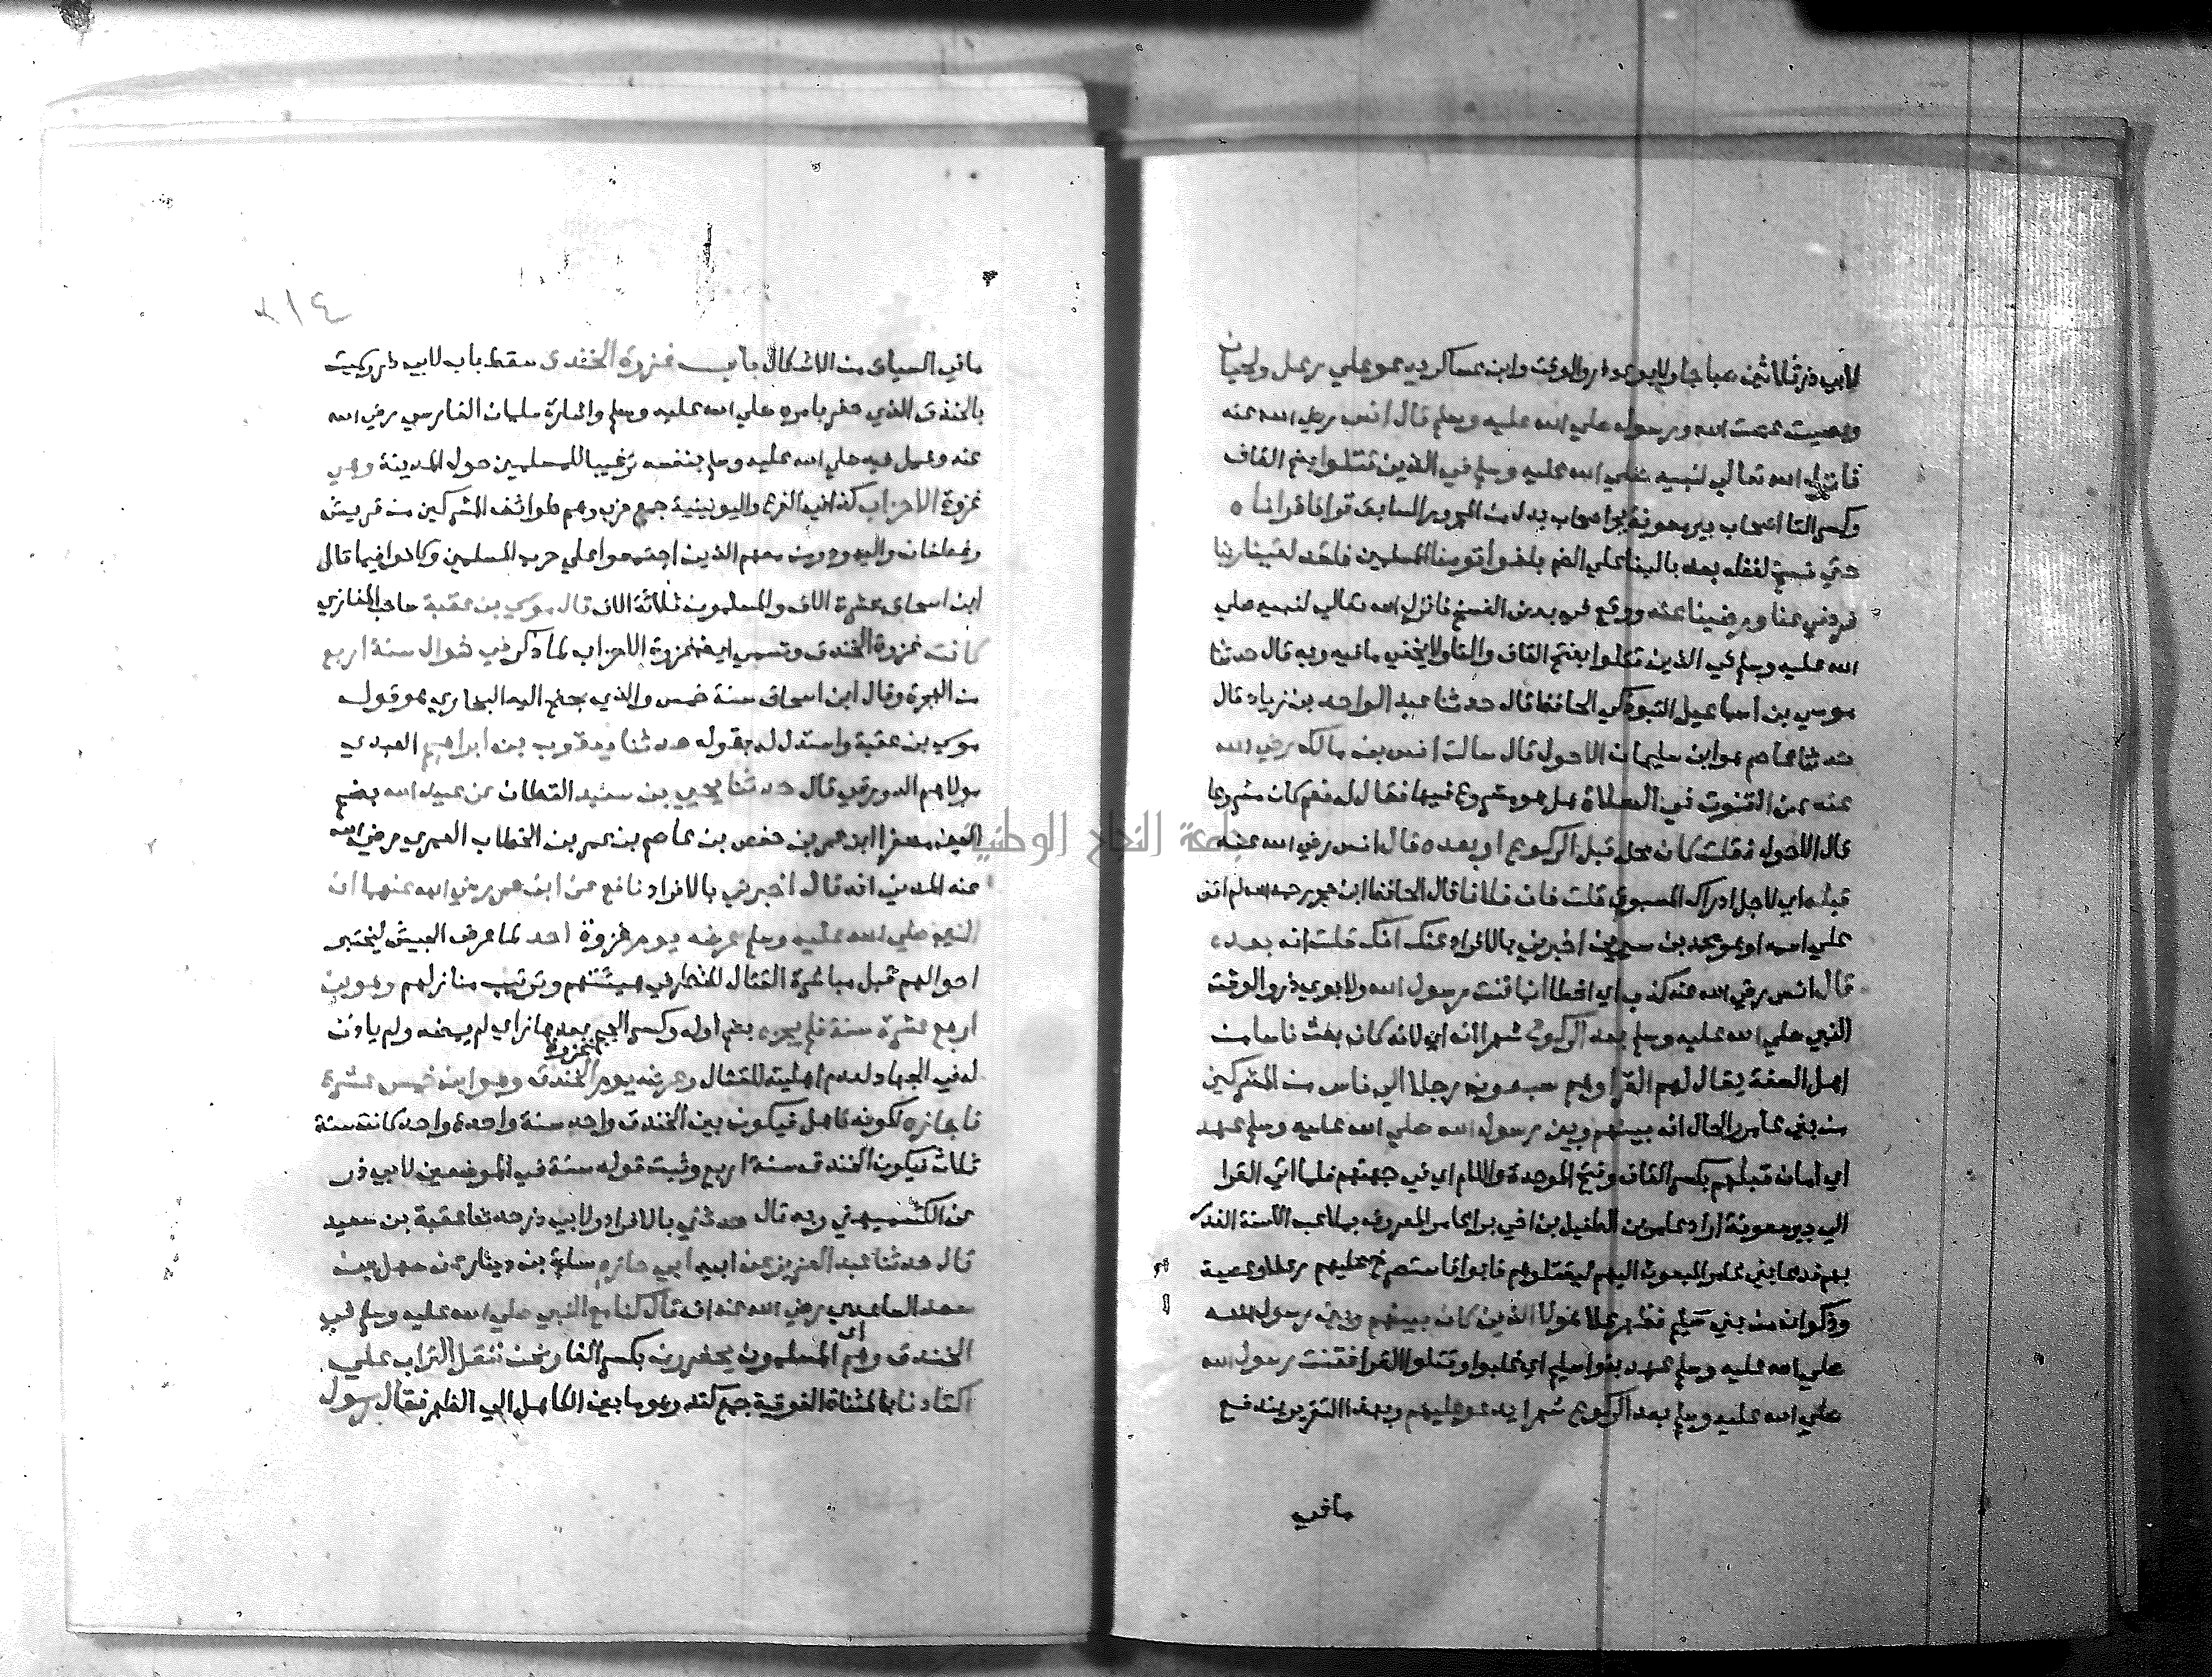 لابي ذر ثلاثين صباحا ولابوي ذر والوقت وابن عساكر يدعو علي رعل ولحيان
وعصيت عصت الله ورسوله صلي الله عليه وسلم قال انس رضي الله عنه
فانزل الله تعالي لنبيه صلي الله عليه وسلم في الذين قتلوا بضم القاف
وكسر التا اصحاب بير معونة بجر اصحاب بدل من المجرور السابق قرانا قراناه
حتي نسخ لفظه بعد بالبنا علي الضم بلغوا قومنا المسلمين فلقد لقينا ربنا
فرضي عنا ورضينا عنه فانزل الله تعالي لنبيه صلي
الله عليه وسلم في الذين قتلوا بفتح القاف والتا ولا يخفي مافيه وبه قال حدثنا
موسي بن اسماعيل التبوذكي الحافظ قال حدثنا عبد الواحد بن زياد قال
حدثنا عاصم هو ابن سليمان الاحول قال سالت انس بن مالك رضي الله
عنه عن القنوت في الصلاة هل هو مشروع فيها فقال له نعم كان مشروعا
قال الاحول فقلت كان محله قبل الركوع او بعده قال انس رضي الله عنه
قبله اي لاجل ادراك المسبوق قلت فان فلانا قال الحافظ ابن حجر رحمه الله لم اقف
علي اسمه او هو محمد بن سيرين اخبرني بالافراد عنك انك قلت انه بعده
قال انس رضي الله عنه كذب اي اخطا انما قنت رسول الله ولابوي ذر والوقت
النبي صلي الله عليه وسلم بعد الركوع شهرا انه اي لانه كان بعث ناسا من
اهل الصفة يقال لهم القرا وهم سبعون رجلا الي ناس من المشركين
من بني عامر والحال انه بينهم وبين رسول الله صلي الله عليه وسلم عهد
اي امان قبلهم بكسر القاف وفتح الموحدة واللام اي في جهتهم فلما اتي القرا
الي بير معونة اراد عامر بن الطفيل بن اخي برا عامر المعروف بملاعب الاسنة الغدر
بهم فدعا بني عامر المبعوث اليهم ليقتلوهم فابوا فاستصرخ عليهم رعلا وعصية
وذكوان من بني سليم فظهر هولا الذين كان بينهم وبين رسول الله
صلي الله عليه وسلم عهد بنوا سليم اي غلبوا وقتلوا القرا فقنت رسول الله
صلي الله عليه وسلم بعد الركوع شهرا يدعو عليهم وبهذا التقرير يندفع
مافي
٢١٤
مافي السياق من الاشكال باب غزوة الخندق سقط باب لابي ذر وسميت
بالخندق الذي حفر بامره صلي الله عليه وسلم واشارة سلمان الفارسي رضي الله
عنه وعمل فيه صلي الله عليه وسلم بنفسه ترغيبا للمسلمين حول المدينة وهي
غزوة الاحزاب كذا في الفرع واليونينية جمع حزب وهم طوائف المشركين من قريش
وغطفان واليهود ومن معهم الذين اجتمعوا علي حرب المسلمين وكانوا فيما قال
ابن اسحاق عشرة الاف والمسلمون ثلاثة الاف قال موسي بن عقبة صاحب المغازي
كانت غزوة الخندق وتسمي ايضا غزوة الاحزاب لما ذكر في شوال سنة اربع
من الهجرة وقال ابن اسحاق سنة خمس والذي جنح اليه البخاري هو قول
موسي بن عقبة واستدل له بقوله حدثنا يعقوب بن ابراهيم العبدي
مولاهم الدورقي قال حدثنا يحيي بن سعيد القطان عن عبيد الله بضم
العين مصغرا ابن عمر بن حفص بن عاصم بن عمر بن الخطاب العمري رضي الله
عنه المدني انه قال اخبرني بالافراد نافع عن ابن عمر رضي الله عنهما ان
النبي صلي الله عليه وسلم عرضه يوم غزوة احد لما عرض الجيش ليختبر
احوالهم قبل مباشرة القتال للنظر في هيئتهم وترتيب منازلهم وهو ابن
اربع عشرة سنة فلم يجزه بضم اوله وكسر الجيم بعدها زاي لم يمضه ولم ياذن
له في الجهاد لعدم اهليته للقتال وعرضه يوم غزوة الخندق وهو ابن خمس عشرة
فاجازه لكونه تاهل فيكون بين الخندق واحد سنة واحدة واحد كانت سنة
ثلاث فيكون الخندق سنة اربع وثبت قوله سنة في الموضعين لابي ذر
عن الكشميهني وبه قال حدثني بالافراد ولابي ذر حدثنا قتيبة بن سعيد
قال حدثنا عبد العزيز عن ابيه ابي حازم سلمة بن دينار عن سهل بن
سعد الساعدي رضي الله عنه انه قال كنا مع النبي صلي الله عليه وسلم في
الخندق وهم اي المسلمون يحفرون بكسر الفا ونحن ننقل التراب علي
اكتادنا بالمثناة الفوقية جمع كتد وهو ما بين الكاهل الي الظهر فقال رسول
جامعة النجاح الوطنية